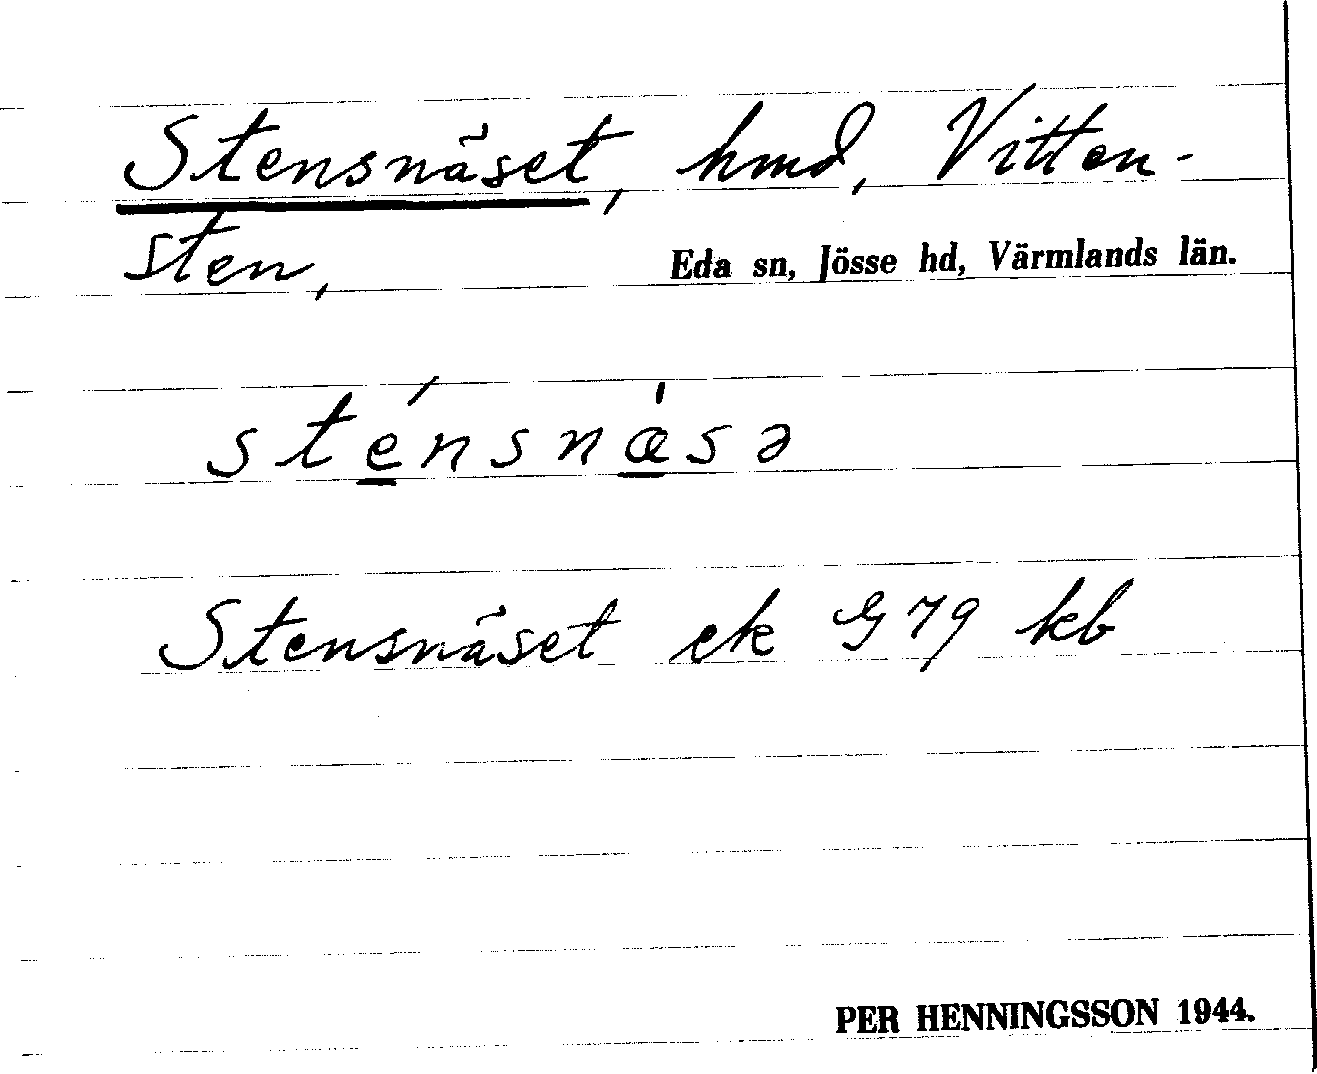 Stensnäset, hmd, Vitten-
sten,
Eda sn, Jösse hd, Värmlands län.
sténsnæ̀sə
Stensnäset ek G 79 kb
PER HENNINGSSON 1944.